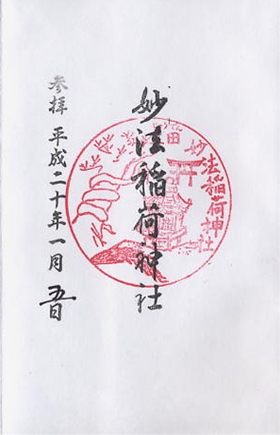 妙法稲荷神社
参拝 平成二十年一月五日
田
法稲荷神社